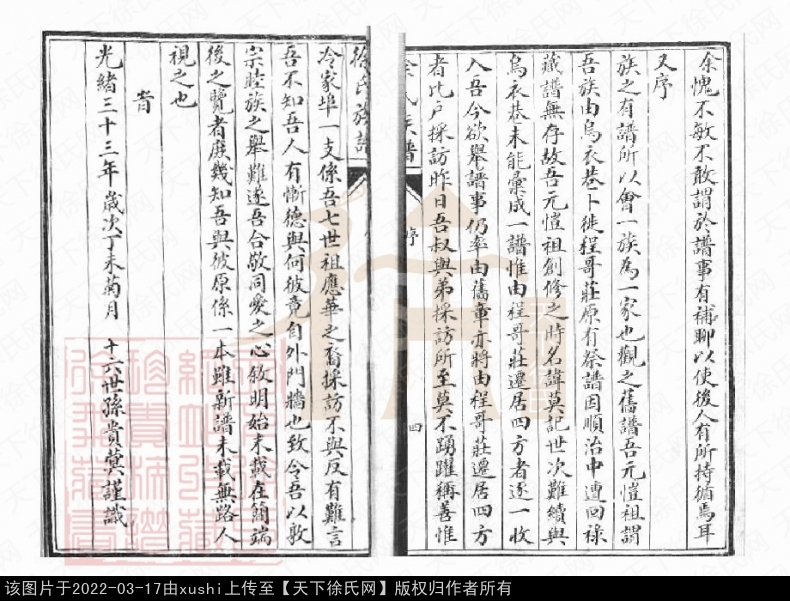 余愧不敏不敢謂於譜事有補聊以使後人有所持循焉耳
又序
族之有譜所以會一族為一家也觀之舊譜吾元愷祖謂
吾族由烏衣巷卜徙程哥莊原有祭譜因順治中遭回祿
藏譜無存故吾元愷祖創修之時名諱莫記世次難續與
烏衣巷未能彙成一譜惟由程哥莊遷居四方者逐一收
入吾今欲舉譜事仍率由舊章亦將由程哥莊遷居四方
者比户採訪昨日吾叔與弟採訪所至莫不踴躍稱善惟
徐氏族譜
序
四
徐氏族譜
冷家埠一支係吾七世祖應華之裔採訪不與反有難言
吾不知吾人有慚德與何彼竟自外門牆也致令吾以敦
宗睦族之舉難遂吾合敬同愛之心敘明始末載在簡端
後之覽者庶幾知吾與彼原係一本雖新譜未載無路人
視之也
旹
光緒三十三年歲次丁未菊月 十六世孫貴蓂謹識
天下徐氏网
该图片于2022-03-17由xushi上传至【天下徐氏网】版权归作者所有